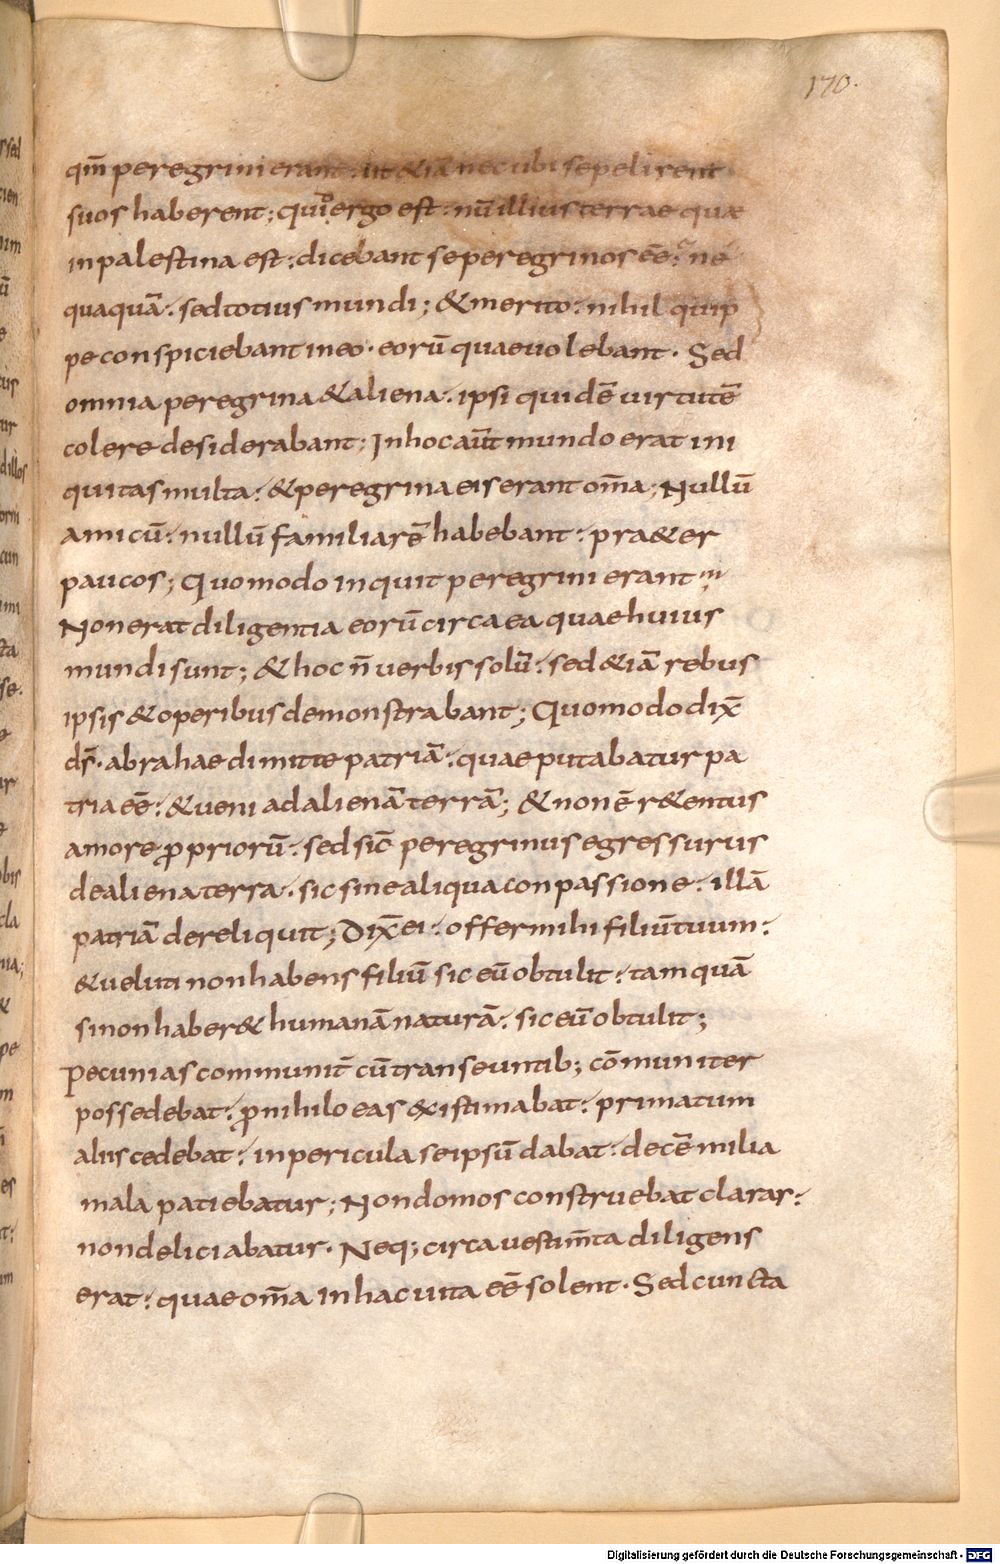 170.
qm̄ peregrini erant. ut &iā nec ubi sepelirent
suos haberent; quid ergo est. nū illius terrae quae
in palestina est: dicebant se peregrinos eē? ne
quaquā. sed totius mundi; & merito. nihil quip
pe conspiciebant in eo. eorū quae uolebant. Sed
omnia peregrina & aliena. ipsi quidē uirtutē
colere desiderabant: In hoc aūt mundo erat ini
quitas multa. & peregrina eis erant om̄a; Nullū
amicū. nullū familiarē habebant. pra&er
paucos; Quomodo inquit peregrini erant
Non erat diligentia eorū circa ea quae huius
mundi sunt; & hoc n̄ uerbis solū. sed &iā rebus
ipsis & operibus demonstrabant; Quomodo dix̄
ds̄. abrahae dimitte patriā. quae putabatur pa
tria eē. & ueni ad alienā terrā; & non ē r&entus
amore ꝓpriorū. sed sic̄ peregrinus egressurus
de aliena terra. sic sine aliqua conpassione. illā
patriā dereliquit; Dix̄ ei. offer mihi filiū tuum.
& ueluti non habens filiū sic eū obtulit. tamquā
si non haber& humanā naturā. sic eū obtulit;
Pecunias communit̄ cū transeuntib; cōmuniter
possedebat. ꝓ nihilo eas existimabat. primatum
aliis cedebat. in pericula se ipsū dabat. decē milia
mala patiebatur; Non domos construebat claras.
non deliciabatur. Neq; circa uestim̄ta diligens
erat. quae om̄a in hac uita eē solent. Sed cuncta
Digitalisierung gefördert durch die Deutsche Forschungsgemeinschaft - DFG